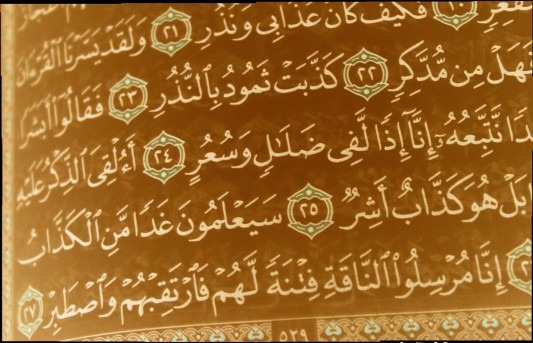 فَكَيْفَ كَانَ عَذَابِى وَنُذُرِ ٢١ وَلَقَدْ يَسَّرْنَا ٱلْقُرْءَانَ
فَهَلْ مِن مُّدَّكِرٍ ٢٢ كَذَّبَتْ ثَمُودُ بِٱلنُّذُرِ ٢٣ فَقَالُوٓا۟ أَبَشَرًا
نَّتَّبِعُهُۥٓ إِنَّآ إِذًا لَّفِى ضَلَـٰلٍ وَسُعُرٍ ٢٤ أَءُلْقِىَ ٱلذِّكْرُ عَلَيْهِ
بَلْ هُوَ كَذَّابٌ أَشِرٌ ٢٥ سَيَعْلَمُونَ غَدًا مَّنِ ٱلْكَذَّابُ
إِنَّا مُرْسِلُوا۟ ٱلنَّاقَةِ فِتْنَةً لَّهُمْ فَٱرْتَقِبْهُمْ وَٱصْطَبِرْ ٢٧
٥٢٩